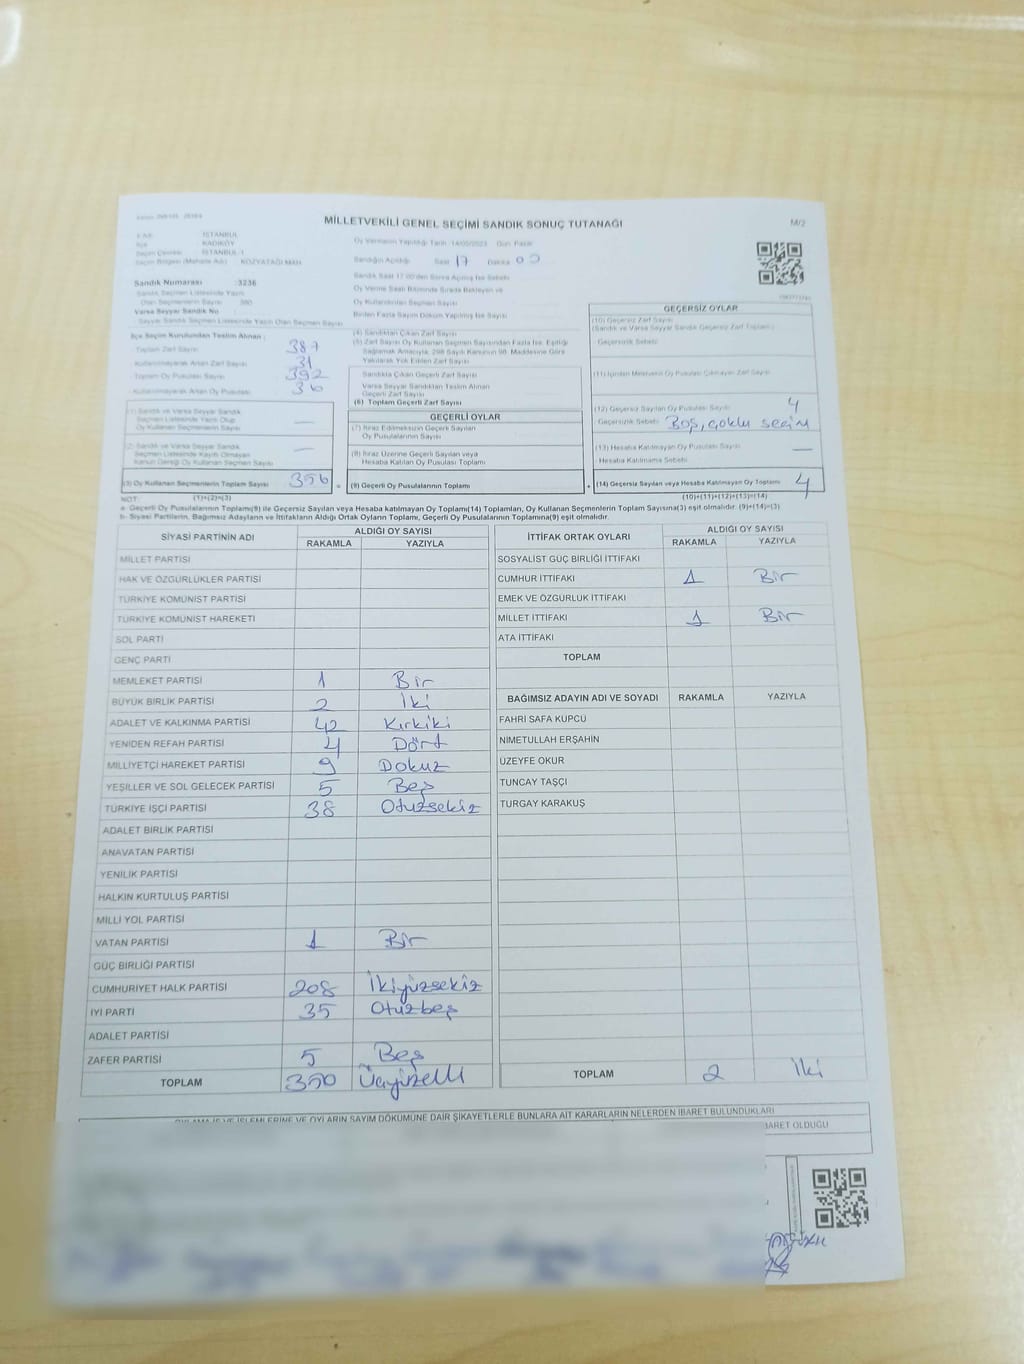 MİLLETVEKİLİ GENEL SEÇİMİ SANDIK SONUÇ TUTANAĞI
M/2
İSTANBUL
KADIKÖY
İSTANBUL-1
KOZYATAĞI MAH.
Oy Vermenin Yapıldığı Tarih :14/05/2023 Gün: Pazar
Sandığın Açıldığı Saat 17 Dakika 00
Sandık Numarası :3236
Varsa Seyyar Sandık No
İlçe Seçim Kurulundan Teslim Alınan :
Toplam Zarf Sayısı 387
Kullanılmayarak Artan Zarf Sayısı 31
Toplam Oy Pusulası Sayısı 392
Kullanılmayarak Artan Oy Pusulası 36
(1) Sandık ve Varsa Seyyar Sandık
Seçmen Listesinde Yazılı Olup
Oy Kullanan Seçmenlerin Sayısı —
(2) Sandık ve Varsa Seyyar Sandık
Seçmen Listesinde Kayıtlı Olmayan
Kanun Gereği Oy Kullanan Seçmen Sayısı —
(3) Oy Kullanan Seçmenlerin Toplam Sayısı 356 =
(4) Sandıktan Çıkan Zarf Sayısı
(5) Zarf Sayısı Oy Kullanan Seçmen Sayısından Fazla ise, Eşitliği
Sağlamak Amacıyla, 298 Sayılı Kanunun 98. Maddesine Göre
Yakılarak Yok Edilen Zarf Sayısı
Sandıkta Çıkan Geçerli Zarf Sayısı
Varsa Seyyar Sandıktan Teslim Alınan
Geçerli Zarf Sayısı
(6) Toplam Geçerli Zarf Sayısı
GEÇERLİ OYLAR
(7) İtiraz Edilmeksizin Geçerli Sayılan
Oy Pusulalarının Sayısı
(8) İtiraz Üzerine Geçerli Sayılan veya
Hesaba Katılan Oy Pusulası Toplamı
(9) Geçerli Oy Pusulalarının Toplamı +
GEÇERSİZ OYLAR
(10) Geçersiz Zarf Sayısı
(Sandık ve Varsa Seyyar Sandık Geçersiz Zarf Toplamı)
Geçersizlik Sebebi
(12) Geçersiz Sayılan Oy Pusulası Sayısı 4
Geçersizlik Sebebi Boş, çoklu seçim
(13) Hesaba Katılmayan Oy Pusulası Sayısı —
Hesaba Katılmama Sebebi
(14) Geçersiz Sayılan veya Hesaba Katılmayan Oy Toplamı 4
NOT: (1)+(2)=(3) (10)+(11)+(12)+(13)=(14)
a- Geçerli Oy Pusulalarının Toplamı(9) ile Geçersiz Sayılan veya Hesaba katılmayan Oy Toplamı(14) Toplamları, Oy Kullanan Seçmenlerin Toplam Sayısına(3) eşit olmalıdır. (9)+(14)=(3)
b- Siyasi Partilerin, Bağımsız Adayların ve İttifakların Aldığı Ortak Oyların Toplamı, Geçerli Oy Pusulalarının Toplamına(9) eşit olmalıdır.
SİYASİ PARTİNİN ADI
ALDIĞI OY SAYISI
RAKAMLA YAZIYLA
MİLLET PARTİSİ
HAK VE ÖZGÜRLÜKLER PARTİSİ
TÜRKİYE KOMÜNİST PARTİSİ
TÜRKİYE KOMÜNİST HAREKETİ
SOL PARTİ
GENÇ PARTİ
MEMLEKET PARTİSİ 1 Bir
BÜYÜK BİRLİK PARTİSİ 2 İki
ADALET VE KALKINMA PARTİSİ 42 Kırkiki
YENİDEN REFAH PARTİSİ 4 Dört
MİLLİYETÇİ HAREKET PARTİSİ 9 Dokuz
YEŞİLLER VE SOL GELECEK PARTİSİ 5 Beş
TÜRKİYE İŞÇİ PARTİSİ 38 Otuzsekiz
ADALET BİRLİK PARTİSİ
ANAVATAN PARTİSİ
YENİLİK PARTİSİ
HALKIN KURTULUŞ PARTİSİ
MİLLİ YOL PARTİSİ
VATAN PARTİSİ 1 Bir
GÜÇ BİRLİĞİ PARTİSİ
CUMHURİYET HALK PARTİSİ 208 İkiyüzsekiz
İYİ PARTİ 35 Otuzbeş
ADALET PARTİSİ
ZAFER PARTİSİ 5 Beş
TOPLAM 350 Üçyüzelli
İTTİFAK ORTAK OYLARI
ALDIĞI OY SAYISI
RAKAMLA YAZIYLA
SOSYALİST GÜÇ BİRLİĞİ İTTİFAKI
CUMHUR İTTİFAKI 1 Bir
EMEK VE ÖZGÜRLÜK İTTİFAKI
MİLLET İTTİFAKI 1 Bir
ATA İTTİFAKI
TOPLAM
BAĞIMSIZ ADAYIN ADI VE SOYADI RAKAMLA YAZIYLA
FAHRİ SAFA KÜPCÜ
NİMETULLAH ERŞAHİN
ÜZEYFE OKUR
TUNCAY TAŞÇI
TURGAY KARAKUŞ
TOPLAM 2 İki
OYLARIN SAYIM DÖKÜMÜNE DAİR ŞİKAYETLERLE BUNLARA AİT KARARLARIN NELERDEN İBARET BULUNDUKLARI
İBARET OLDUĞU